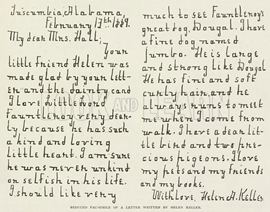 Tuscumbia, Alabama,
February 13th 1889.
My dear Mrs. Hall;
Your
little friend Helen was
made glad by your lett-
er and the dainty card
I love little Lord
Fauntleroy very dear-
ly because he has such
a kind and loving
little heart. I am sure
he was never unkind
or selfish in his life.
I should like very
much to see Fauntleroy's
great dog, Dougal. I have
a fine dog named
Jumbo. He is large
and strong like Dougal
He has fine and soft
curly hair, and he
always runs to meet
me when I come from
walk. I have a dear lit-
tle bird and two pre-
cious pigeons. I love
my pets and my friends
and my books.
With love, Helen H. Keller
REDUCED FAC-SIMILE OF A LETTER WRITTEN BY HELEN KELLER.